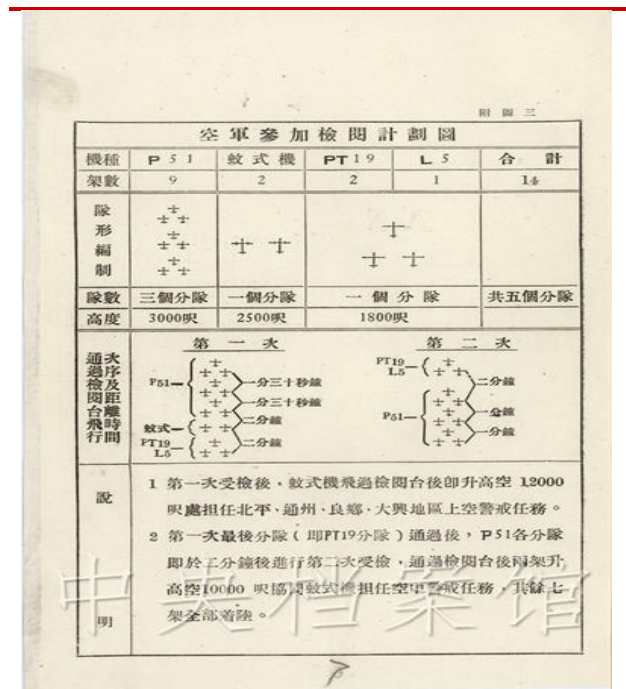 附圖三
空軍參加檢閱計劃圖
機種 P51 蚊式機 PT19 L5 合計
架數 9 2 2 1 14
隊形編制
隊數 三個分隊 一個分隊 一個分隊 共五個分隊
高度 3000呎 2500呎 1800呎
通過檢閱台飛行次序及距離時間
第一次
P51
一分三十秒鐘
一分三十秒鐘
二分鐘
蚊式
PT19
L5
二分鐘
第二次
PT19
L5
二分鐘
P51
一分鐘
一分鐘
說明
1 第一次受檢後，蚊式機飛過檢閱台後卽升高空 12000
呎處担任北平、通州、良鄉、大興地區上空警戒任務。
2 第一次最後分隊（卽PT19分隊）通過後，P51各分隊
卽於二分鐘後進行第二次受檢，通過檢閱台後兩架升
高空10000 呎協同蚊式機担任空中警戒任務，其餘七
架全部着陸。
中央档案馆